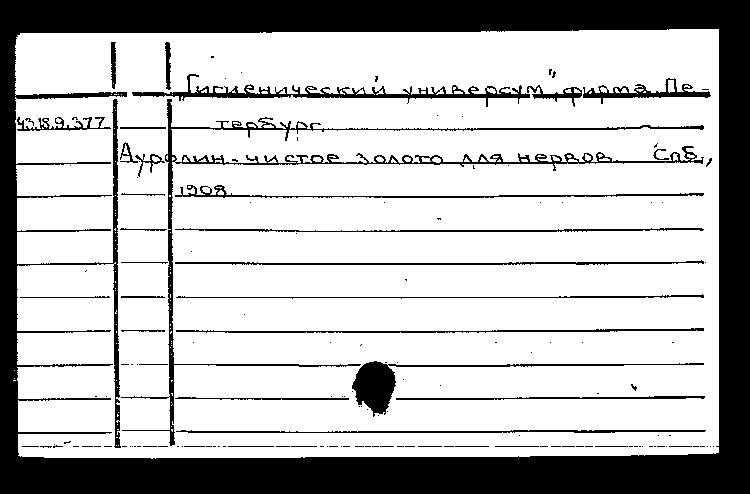 „Гигиенический универсум", фирма. Пе-
43.18.9.377 тербург.
Ауролин - чистое золото для нервов. Спб.,
1908.